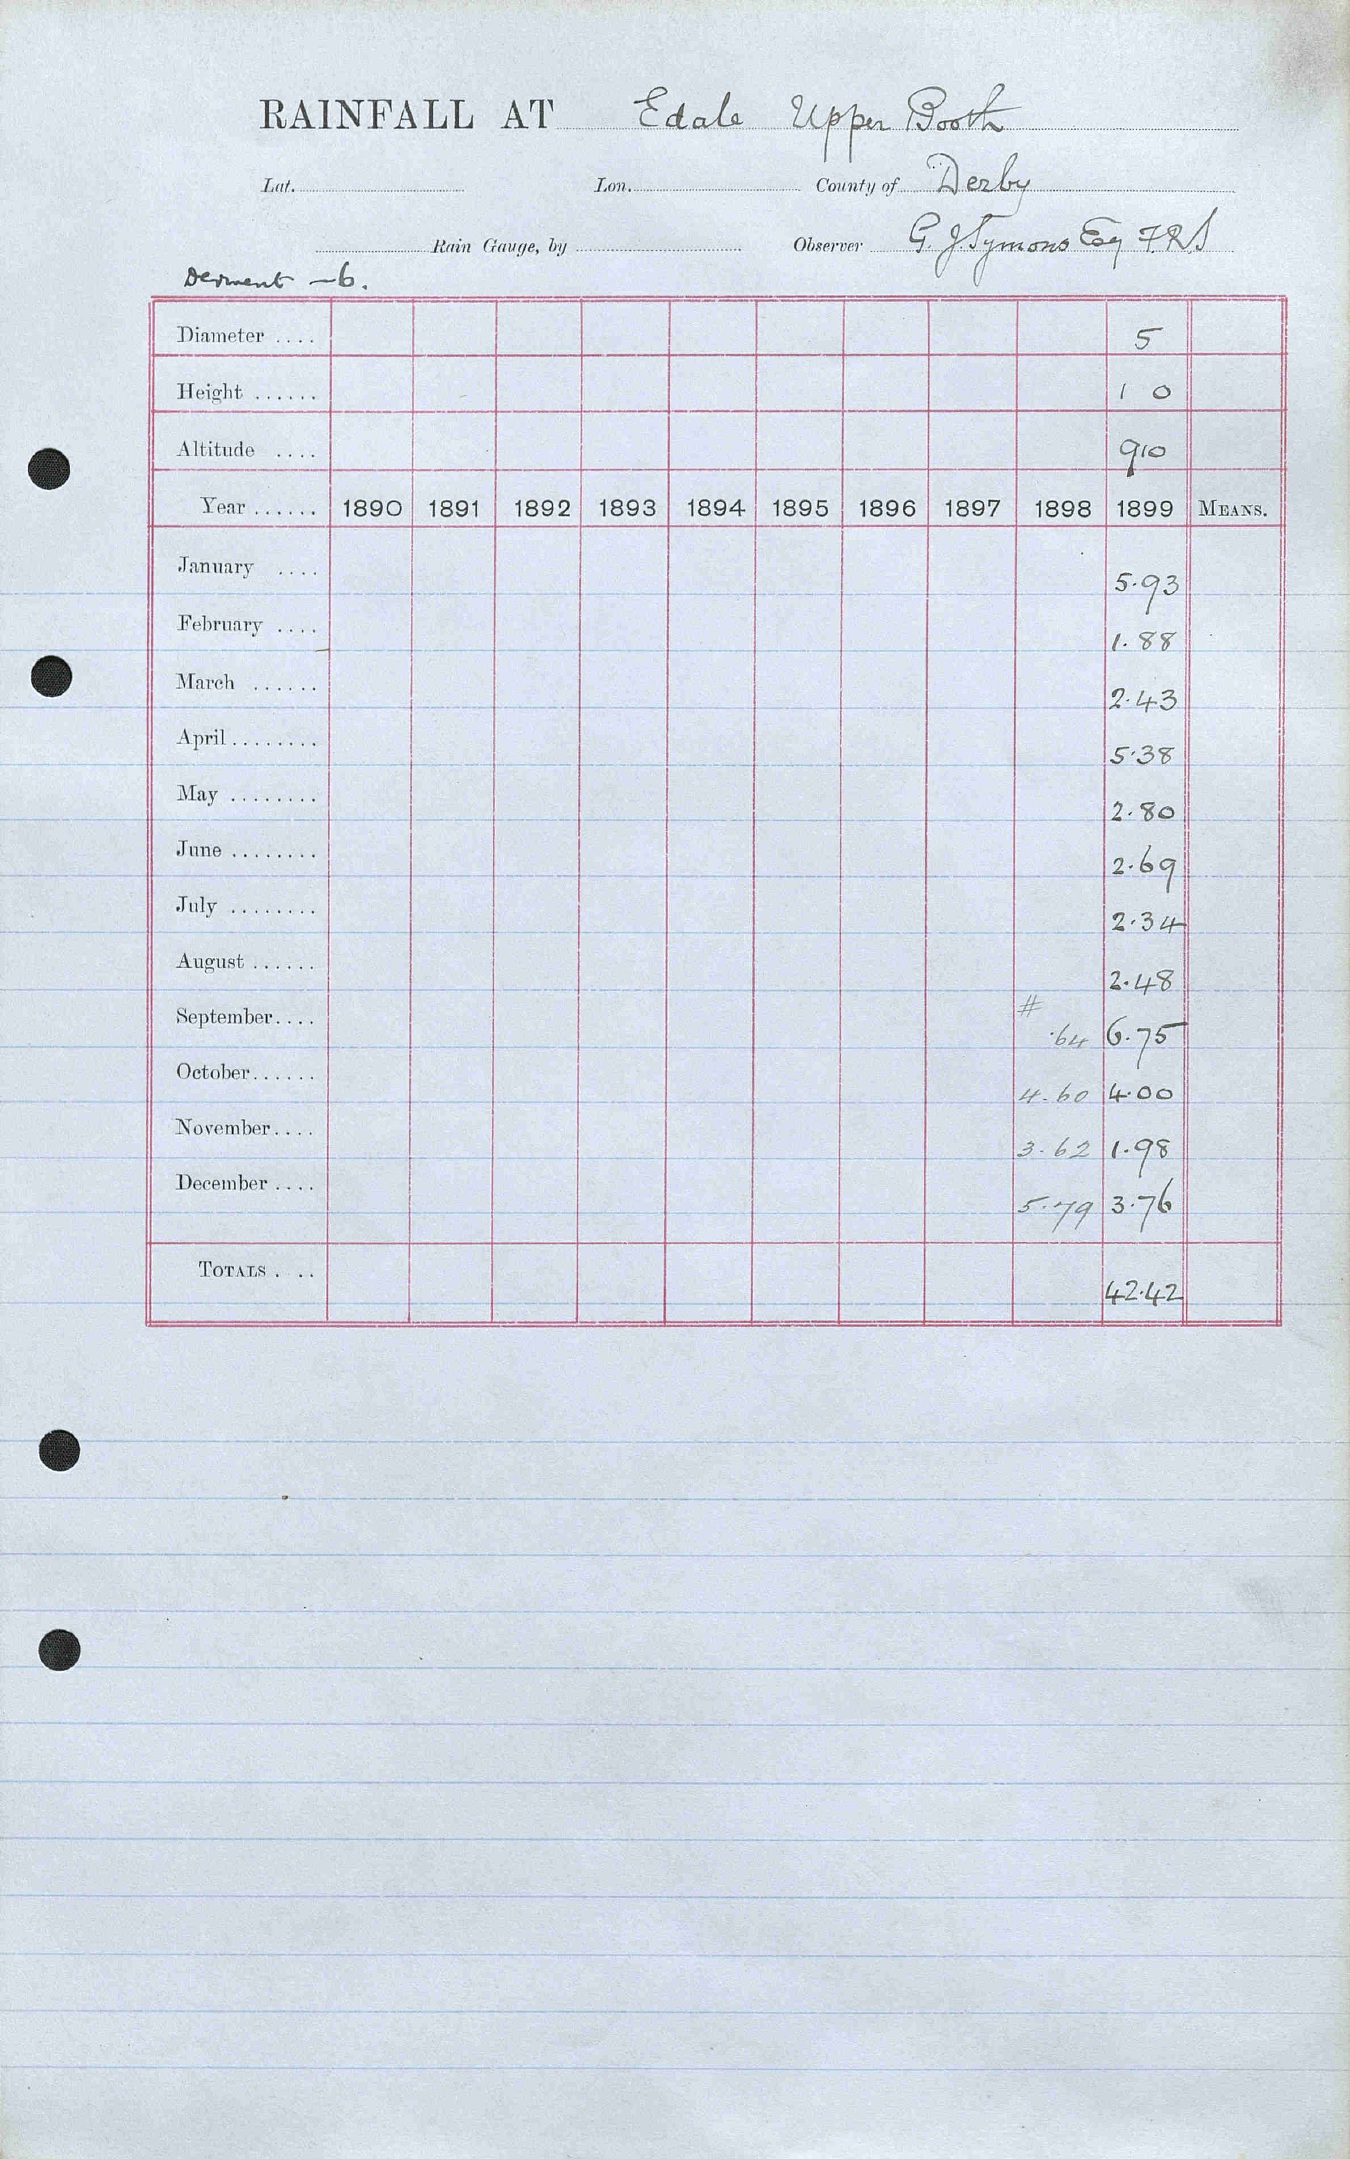 RAINFALL AT Edale Upper Booth
Lat. Lon. County of Derby
Rain Gauge, by Observer G. J. Symons Esq F.R.S
Derwent — 6.
Diameter .... 5
Height ...... 1 0
Altitude .... 910
Year ...... 1890 1891 1892 1893 1894 1895 1896 1897 1898 1899 MEANS.
January .... 5.93
February .... 1.88
March ...... 2.43
April ........ 5.38
May ........ 2.80
June ........ 2.69
July ........ 2.34
August ...... 2.48
#
September.... .64 6.75
October...... 4.60 4.00
November.... 3.62 1.98
December .... 5.79 3.76
TOTALS . .. 42.42